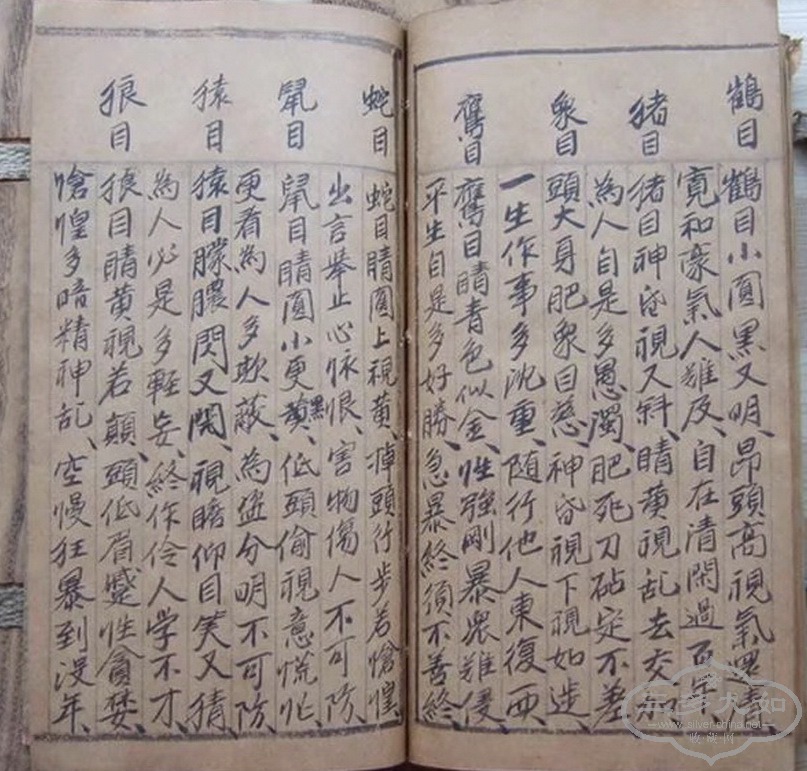 鶴目
鶴目小圓黑又明、昂頭高視氣
寬和豪氣人難及、自在清閑過
猪目
猪目神昏視又斜、睛黄視乱去交
為人自是多愚濁、肥死刀砧定不差
象目
頭大身肥象目慈、神昏視下視如造
一生作事多沈重、随行他人東復西
鷹目
鷹目睛青色似金、性強剛暴眾難侵
平生自是多好勝、急暴終須不善終
蛇目
蛇目睛圓上視黄、掉頭行步若愴惶
出言舉止心怀恨、害物傷人不可防、
鼠目
鼠目睛圓小更黑、低頭偷視意慌忙
更看為人多欺蔽、為盗分明不可防、
猿目
猿目朦朧閃又開、視瞻仰目笑又猜
為人必是多軽妄、終作伶人学不才
狼目
狼目睛黄視若顛、頭低眉蹙性貪婪
愴惶多暗精神乱、空慢狂暴到没年、
www.silver-china.net
收藏网